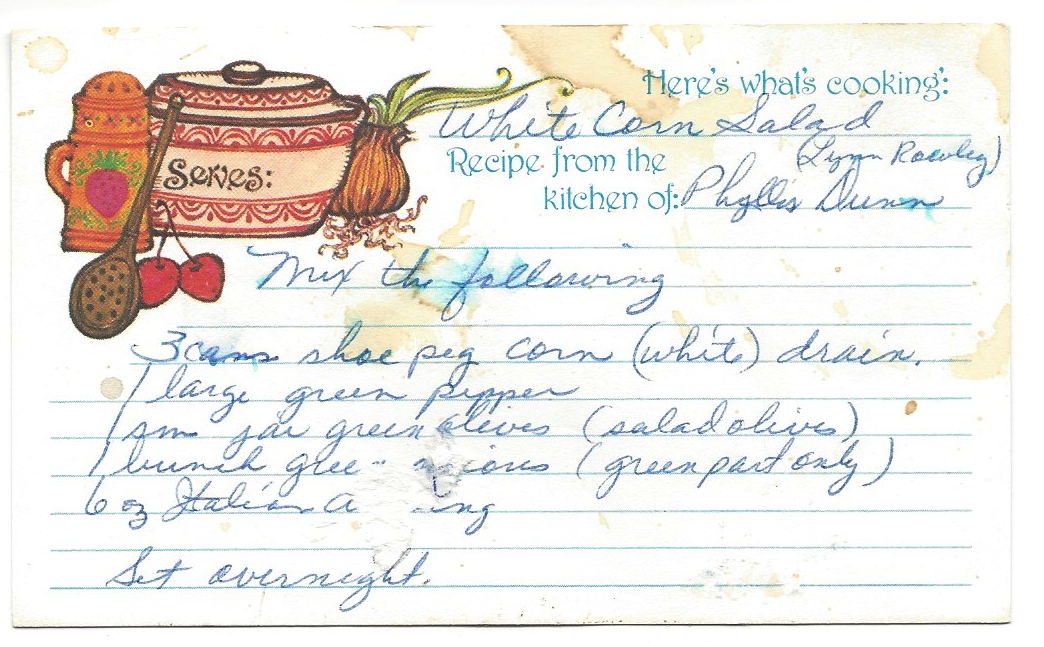 Here's what's cooking:
White Corn Salad
(Lynn Rowley)
Serves:
Recipe from the
kitchen of: Phyllis Dunn
Mix the following
3 cans shoe peg corn (white) drain.
1 large green pepper
1 sm jar green olives (salad olives)
1 bunch green onions (green part only)
6 oz Italian
Set overnight.